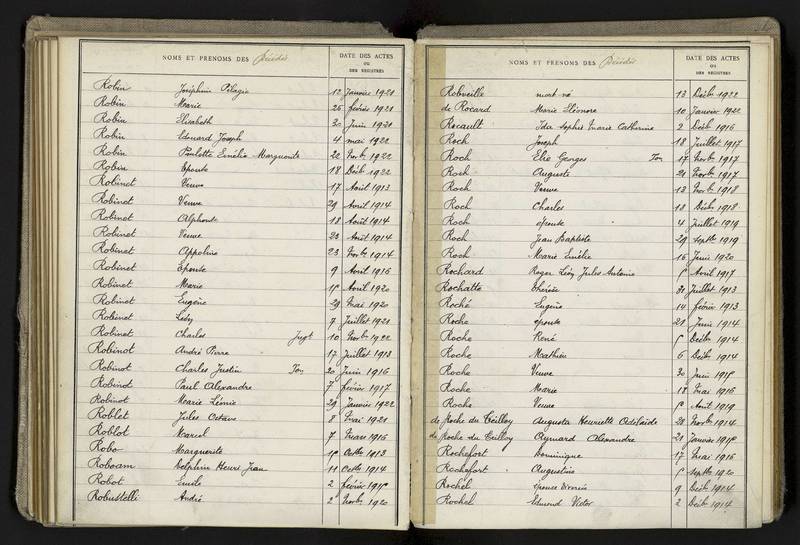 NOMS ET PRENOMS DES Décédés DATE DES ACTES
OU
DES REGISTRES
Robin Joséphine Pélagie 12 Janvier 1921
Robin Marie 26 février 1921
Robin Elisabeth 30 Juin 1921
Robin Edouard Joseph 4 mai 1922
Robin Paulette Emélie Marguerite 22 Novbre 1922
Robin Epouse 18 Décbre 1922
Robinet Veuve 17 Août 1913
Robinet Veuve 29 Avril 1914
Robinet Alphonse 18 Août 1914
Robinet Veuve 23 Août 1914
Robinet Appoline 23 Novbre 1914
Robinet Epouse 9 Avril 1916
Robinet Marie Avril 1920
Robinet Eugène 29 Mai 1920
Robinet Léon 7 Juillet 1921
Robinet Charles Jugt 10 Novbre 1922
Robinot André Pierre 17 Juillet 1913
Robinot Charles Justin Ton 20 Juin 1916
Robinot Paul Alexandre 7 février 1917
Robinot Marie Léonie 29 Janvier 1922
Roblet Jules Octave 8 Mai 1921
Roblot Marcel 7 Mars 1916
Robo Marguerite Octbre 1913
Roboam Delphin Henri Jean 11 Octbre 1914
Robot Emile 2 février
Robustelli André 2 Novbre 1920
NOMS ET PRENOMS DES Décédés DATE DES ACTES
OU
DES REGISTRES
Robveille mort né 13 Décbre 1922
de Rocard Marie Eléonore 10 Janvier 1922
Rocault Ida Sophie Marie Catherine 2 Décbre 1916
Roch Joseph 18 Juillet 1917
Roch Elie Georges Ton 17 Novbre 1917
Roch Auguste 21 Novbre 1917
Roch Veuve 13 Novbre 1918
Roch Charles 18 Décbre 1918
Roch épouse 4 Juillet 1919
Roch Jean Baptiste 29 Septbre 1919
Roch Marie Emélie 16 Juin 1920
Rochard Roger Léon Jules Antoine Avril 1917
Rochatte Thérèse 31 Juillet 1913
Roché Eugène 14 février 1913
Roche épouse 21 Juin 1914
Roche René Décbre 1914
Roche Mathieu 6 Décbre 1914
Roche Veuve 30 Juin
Roche Marie 13 Mai 1916
Roche Veuve Août 1919
de Roche du Teilloy Augusta Henriette Adélaïde 28 Novbre 1914
de Roche du Teilloy Aymard Alexandre 21 Janvier
Rochefort Dominique 17 Mai 1916
Rochefort Augustine Septbre 1920
Rochel épouse Divorcée 9 Décbre 1914
Rochel Edmond Victor 2 Décbre 1914